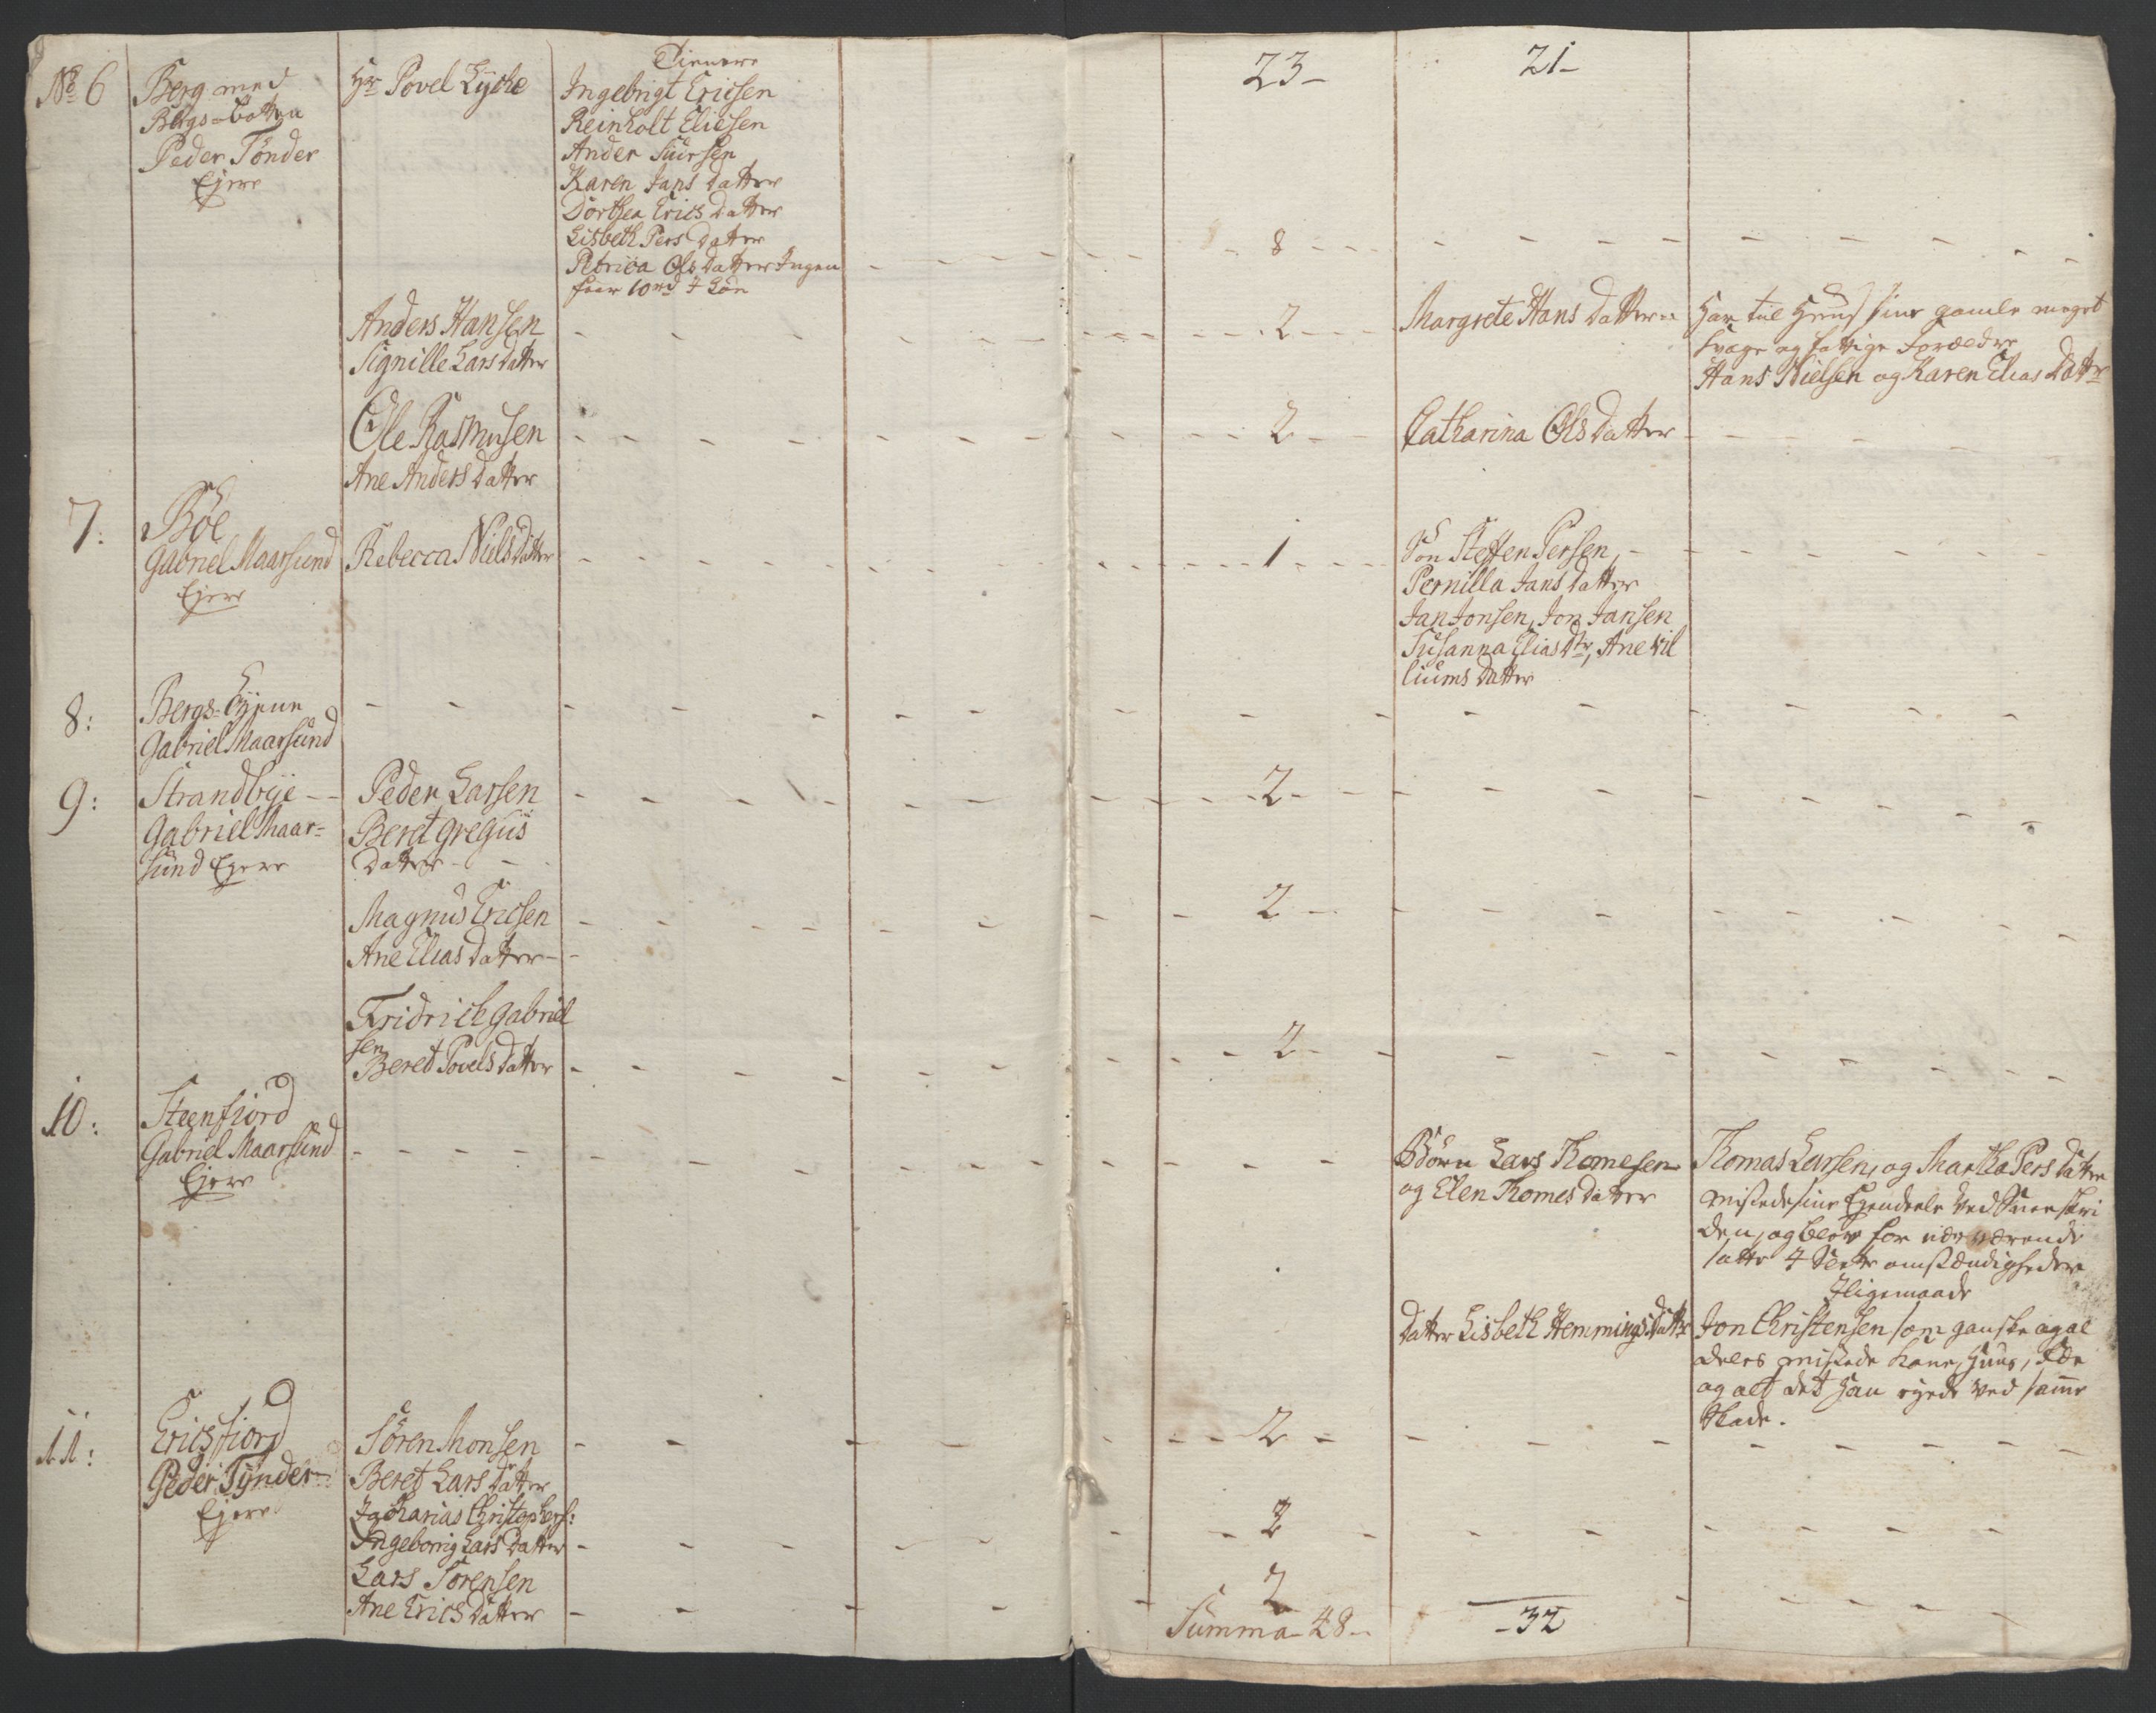 No 6
Berg med
Bergs-botten
Peder Tönder
Ejere
Hr Povel Lyche
Tienere
Ingebrigt Ericsen
Reinholt Eliesen
Ander Siursen
Karen Jans datter
Dorthea Erics datter
Lisbeth Pers datter
Petrica Ols datter Ingen
faar 10 rd i Løn
23-
21-
8
Anders Hansen
Signille Lars datter
2
Margrete Hans datter
Har til Huus sine gamle meget
svage og fattige Forældre
Hans Nielsen og Karen Elias Dattr
Ole Rasmusen
Ane Anders datter
2
Catharina Ols datter
7:
Böe
Gabriel Maarsund
Ejere
Rebecca Niels datter
1
Søn Steffen Persen,
Pernilla Jans datter
Jan Jonsen, Jon Jansen
Susanna Elias Dtr, Ane Vil
liums datter
8:
Bergs-Eyene
Gabriel Maarsund
9:
Strandbye
Gabriel Maar-
sund Ejere
Peder Larsen
Beret Gregus
datter
2
Magnus Ericsen
Ane Elias datter
2
Fridrich Gabriel
sen
Beret Povels datter
2
10:
Steenfiord
Gabriel Maarsund
Ejere
Børn Lars Thomesen
og Elen Thomes datter
Thomas Larsen, og Martha Pers datter
mistede sine Ejendeele ved Sneeskri
den, og bleve for nærværende
satte i slette omstændigheder
Iligemaade
Datter Lisbeth Hemmings Datter
Jon Christensen som ganske og al
deeles mistede Kone, Huus, Fæe
og alt det han eyede ved samme
Skade.
11:
Ericsfiord
Peder Tynder
Ejere
Sören Monsen
Beret Lars datter
2
Zacharias Christophers:
Ingeborrig Lars datter
2
Lars Sörensen
Ane Erics datter
2
Summa 48
32